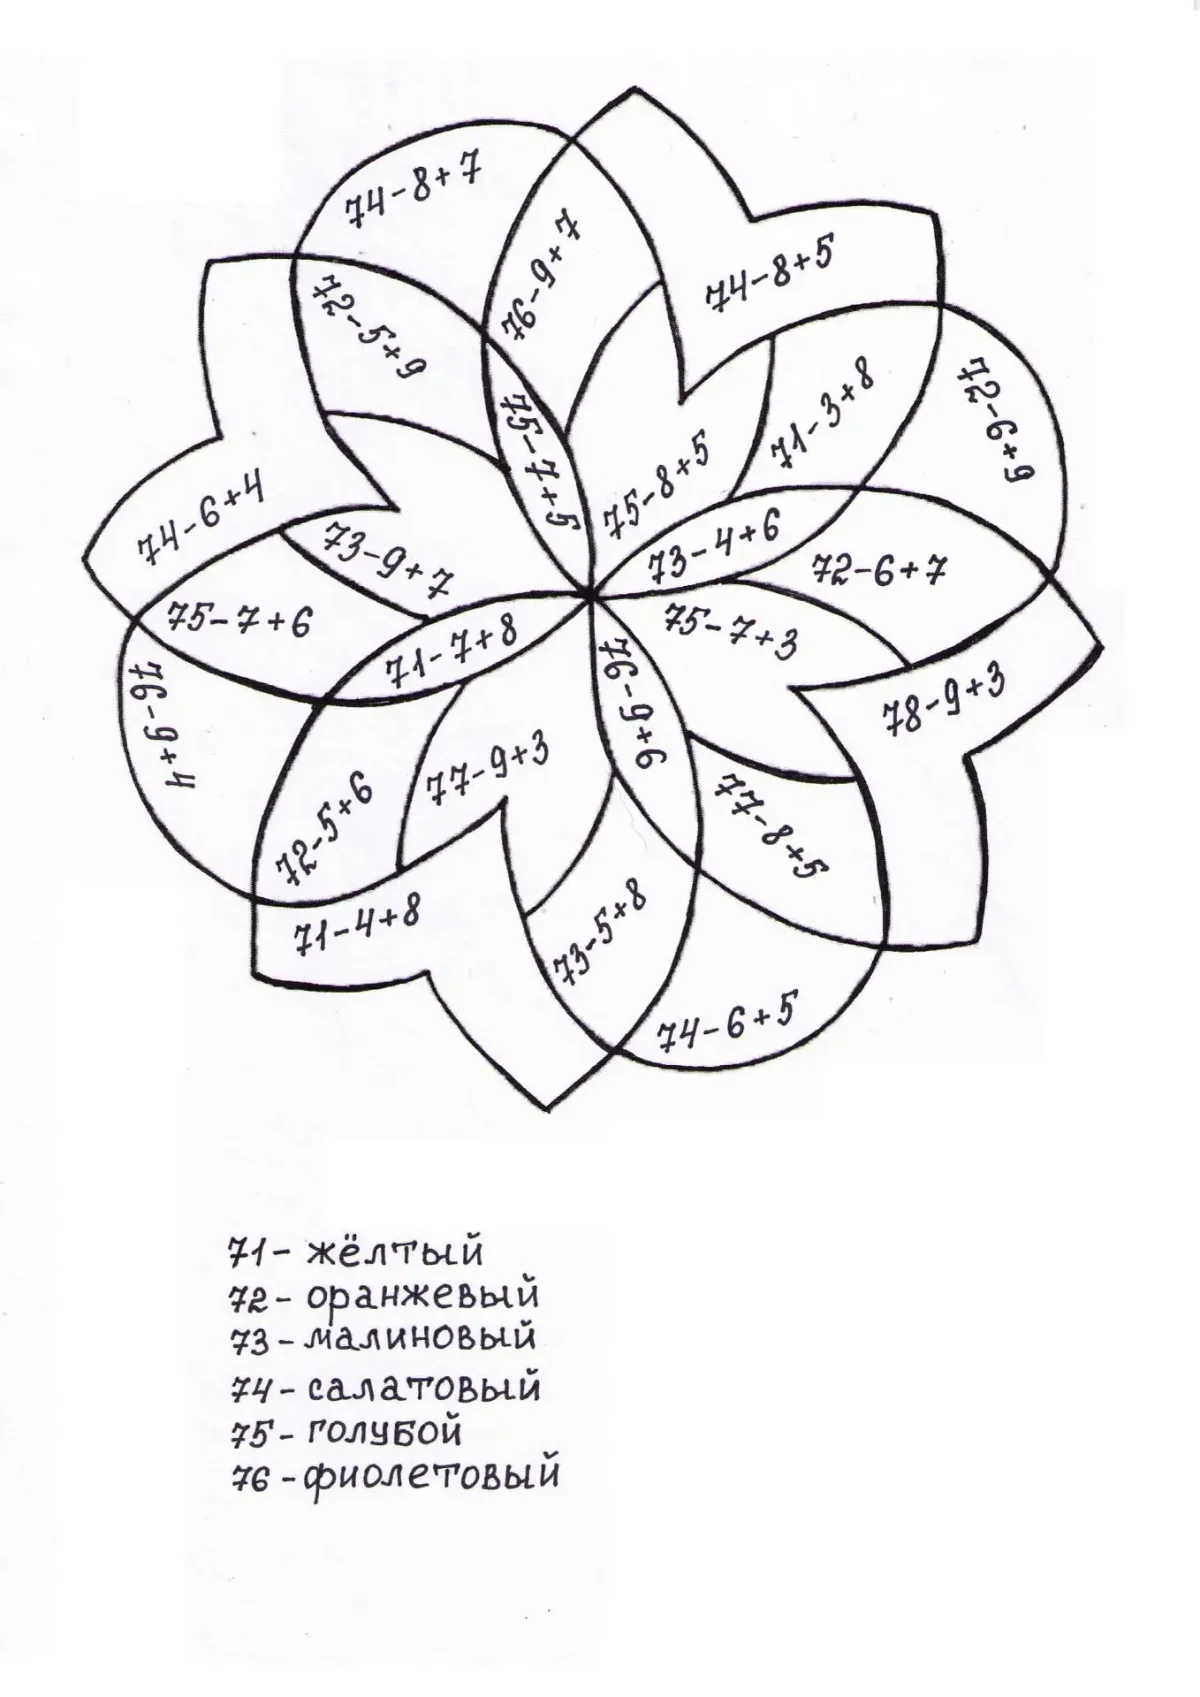 74-8+7
76-9+7
74-8+5
72-5+9
75-7+5
75-8+5
71-3+8
72-6+9
74-6+4
73-9+7
73-4+6
72-6+7
75-7+6
71-7+8
75-7+3
76-9+6
76-9+4
78-9+3
72-5+6
77-9+3
77-8+5
71-4+8
73-5+8
74-6+5
71- жёлтый
72- оранжевый
73- малиновый
74- салатовый
75- голубой
76- фиолетовый